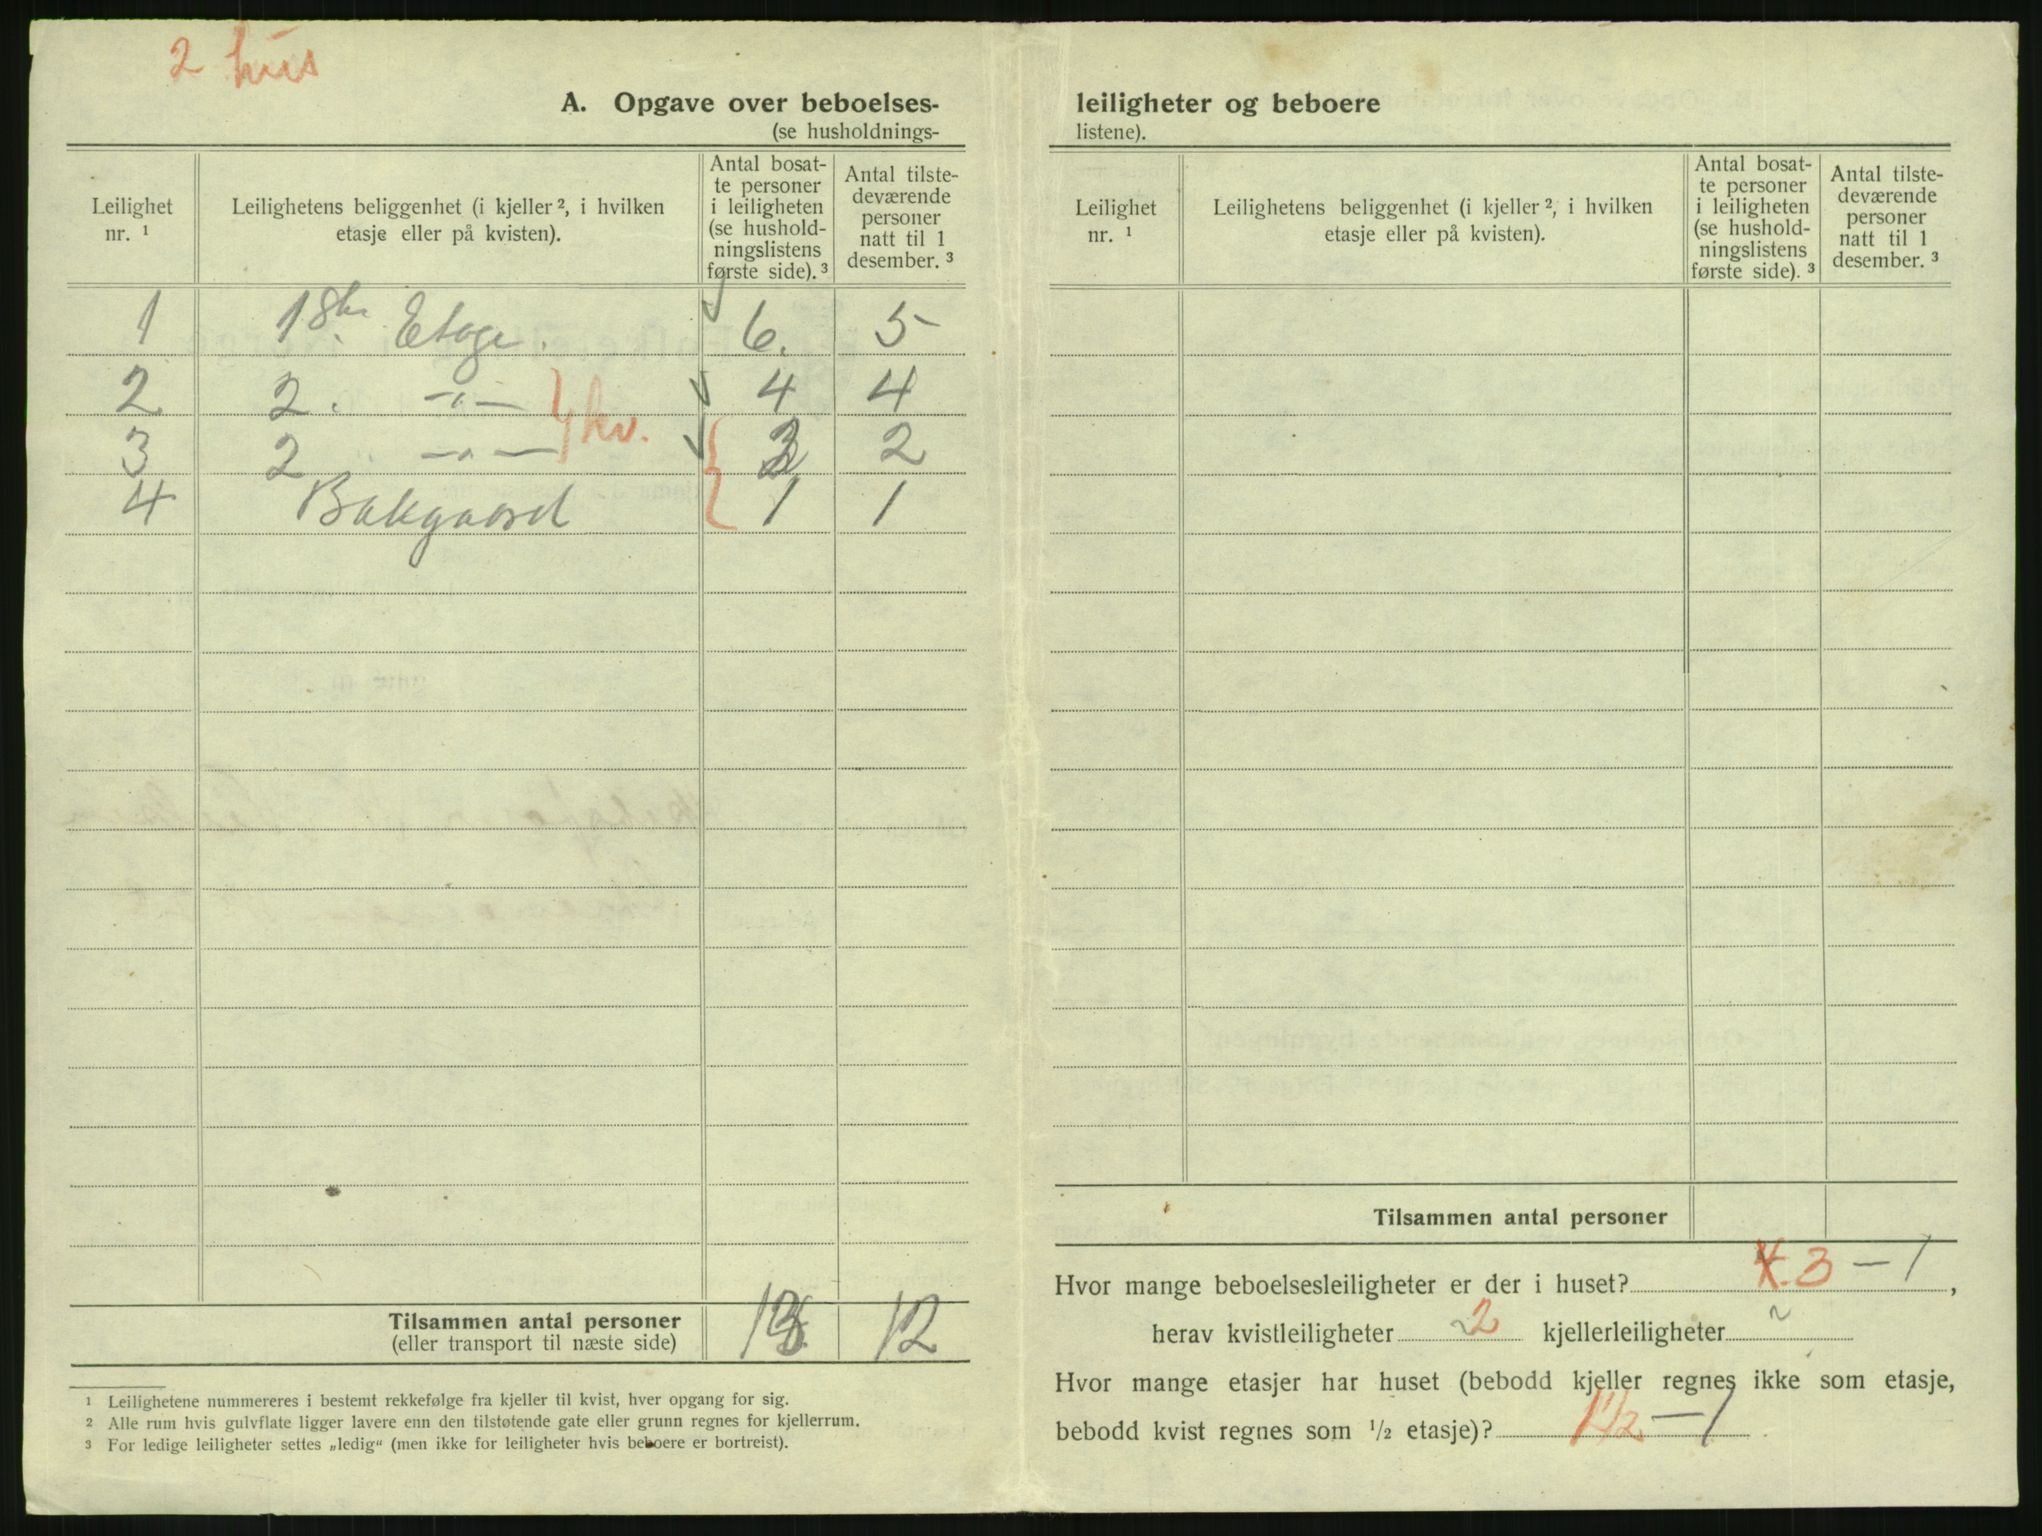 2 hus
A. Opgave over beboelses-
(se husholdnings-
Leilighet nr. ¹
Leilighetens beliggenhet (i kjeller ², i hvilken etasje eller på kvisten).
Antal bosatte personer i leiligheten (se husholdningslistens første side). ³
Antal tilstedeværende personer natt til 1 desember. ³
1 1ste Etage. 6. 5
2 2. -"- 4 4
3 2 -"- 2
} kv.
4 Bakgaard 1 1
Tilsammen antal personer 12
(eller transport til næste side)
¹ Leilighetene nummereres i bestemt rekkefølge fra kjeller til kvist, hver opgang for sig.
² Alle rum hvis gulvflate ligger lavere enn den tilstøtende gate eller grunn regnes for kjellerrum.
³ For ledige leiligheter settes „ledig“ (men ikke for leiligheter hvis beboere er bortreist).
leiligheter og beboere
listene).
Leilighet nr. ¹
Leilighetens beliggenhet (i kjeller ², i hvilken etasje eller på kvisten).
Antal bosatte personer i leiligheten (se husholdningslistens første side). ³
Antal tilstedeværende personer natt til 1 desember. ³
Tilsammen antal personer
Hvor mange beboelsesleiligheter er der i huset? 4. 3 – 1,
herav kvistleiligheter 2 kjellerleiligheter ~
Hvor mange etasjer har huset (bebodd kjeller regnes ikke som etasje,
bebodd kvist regnes som ½ etasje)? 1½ – 1